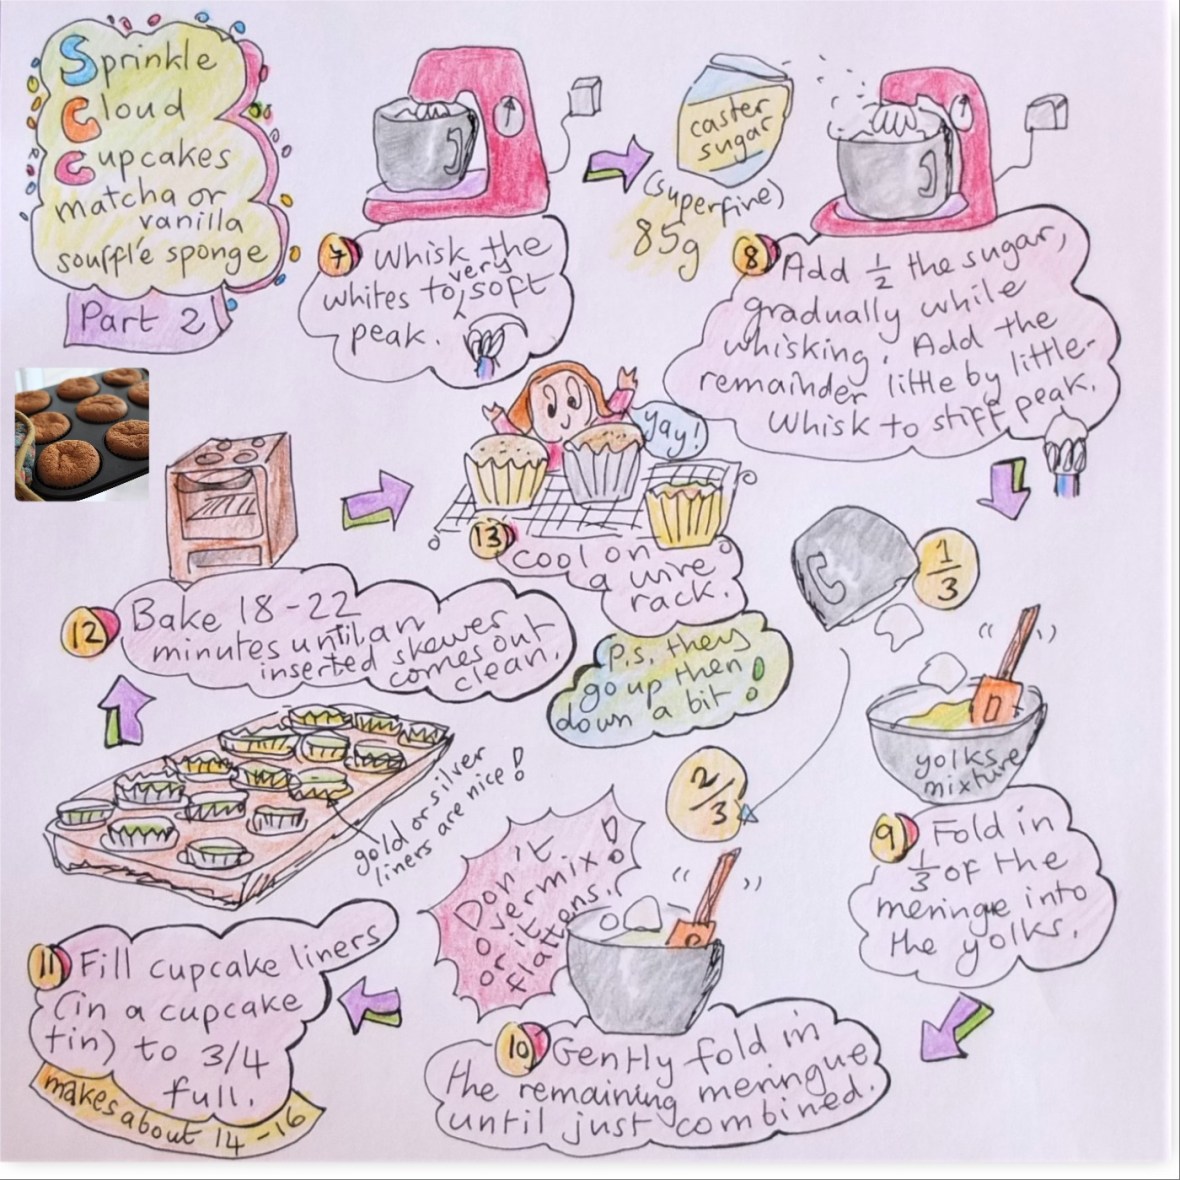 Sprinkle
Cloud
Cupcakes
matcha or
vanilla
soufflé sponge
Part 2
7 Whisk the
very
whites to soft
peak.
caster
sugar
(superfine)
85g
8 Add 1/2 the sugar,
gradually while
whisking. Add the
remainder little by little.
Whisk to stiff peak.
1/3
yolks
mixture
9 Fold in
1/3 of the
meringe into
the yolks.
2/3
Don't
overmix!
or it
flattens.
10 Gently fold in
the remaining meringue
until just combined.
11 Fill cupcake liners
(in a cupcake
tin) to 3/4
full.
makes about 14-16
gold or silver
liners are nice!
12 Bake 18-22
minutes until an
inserted skewer
comes out
clean.
yay!
13 Cool on
a wire
rack.
P.S. they
go up then
down a bit!